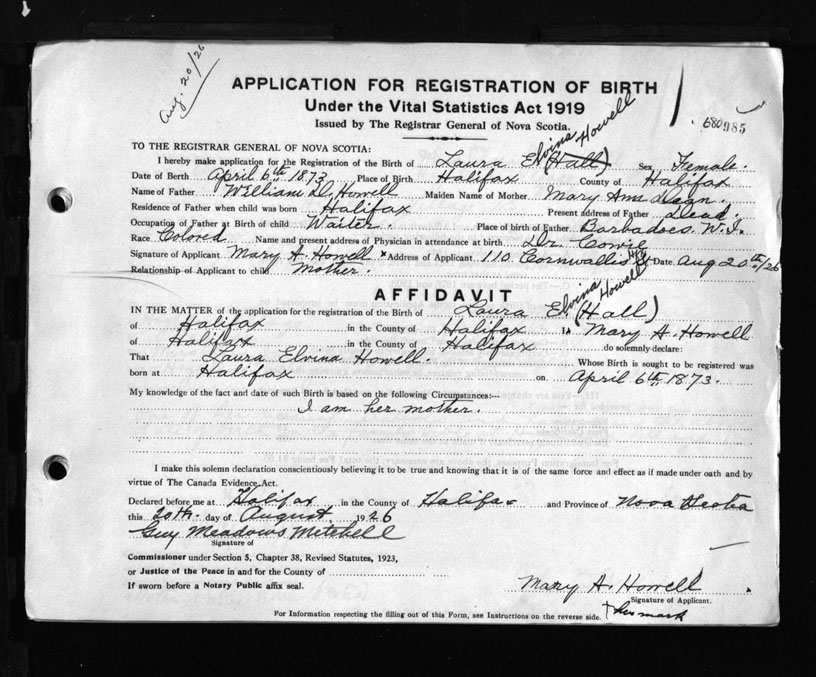 Aug. 20/26
APPLICATION FOR REGISTRATION OF BIRTH
Under the Vital Statistics Act 1919
Issued by The Registrar General of Nova Scotia.
985
TO THE REGISTRAR GENERAL OF NOVA SCOTIA:
Elvina Howell
I hereby make application for the Registration of the Birth of Laura E. (Hall) Sex Female.
Date of Birth April 6th 1873 Place of Birth Halifax County of Halifax
Name of Father William D. Howell Maiden Name of Mother Mary Ann Dean.
Residence of Father when child was born Halifax Present address of Father Dead.
Occupation of Father at Birth of child Waiter. Place of birth of Father Barbadoes W.I.
Race Colored Name and present address of Physician in attendance at birth Dr. Cowie
Signature of Applicant Mary A. Howell x Address of Applicant 110 Cornwallis St Date Aug 20th/26
Relationship of Applicant to child Mother.
AFFIDAVIT
Elvina Howell
IN THE MATTER of the application for the registration of the Birth of Laura E. (Hall)
of Halifax in the County of Halifax I, Mary A. Howell
of Halifax in the County of Halifax do solemnly declare:
That Laura Elvina Howell. Whose Birth is sought to be registered was
born at Halifax on April 6th 1873.
My knowledge of the fact and date of such Birth is based on the following Circumstances:—
I am her mother.
I make this solemn declaration conscientiously believing it to be true and knowing that it is of the same force and effect as if made under oath and by
virtue of The Canada Evidence Act.
Declared before me at Halifax in the County of Halifax and Province of Nova Scotia
this 20th. day of August 1926
Guy Meadows Mitchell
Signature of
Commissioner under Section 5, Chapter 38, Revised Statutes, 1923,
or Justice of the Peace in and for the County of
If sworn before a Notary Public affix seal.
Mary A. Howell
Signature of Applicant.
her mark
For Information respecting the filling out of this Form, see Instructions on the reverse side.